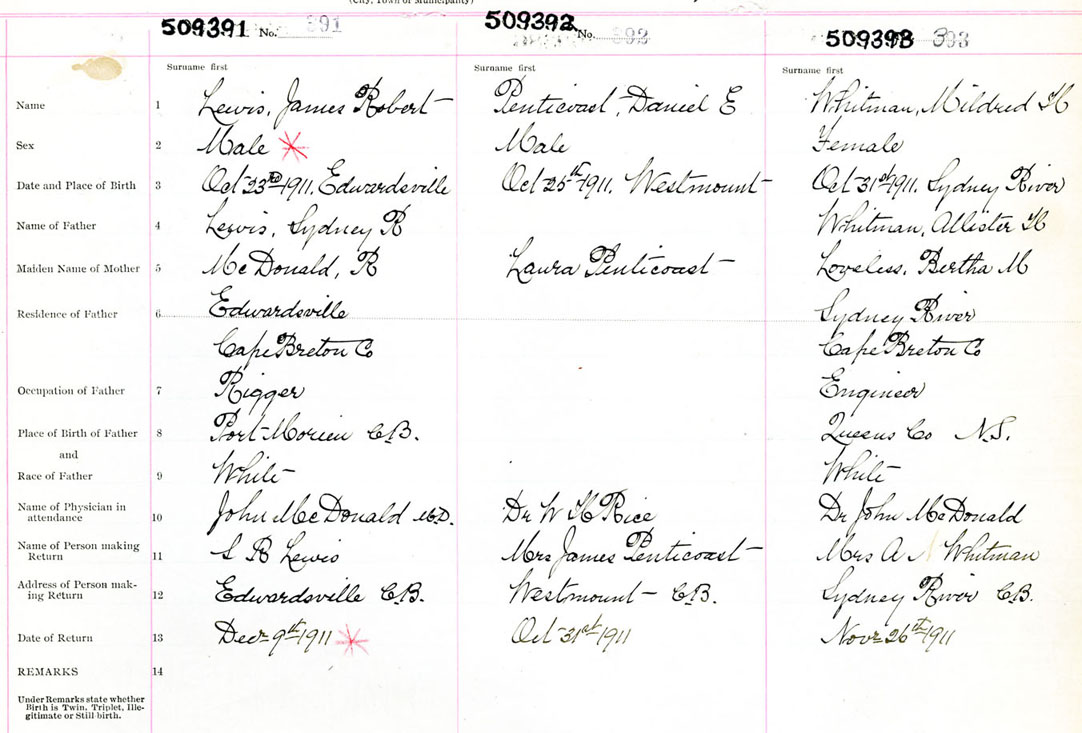 (City, Town or Municipality)
509391 No. 391
509392 No. 392
509393 393
Surname first Surname first Surname first
Name 1 Lewis, James Robert Penticoast, Daniel E Whitman, Mildred H
Sex 2 Male Male Female
Date and Place of Birth 3 Oct 23rd 1911. Edwardsville Oct 25th 1911. Westmount Oct 31st 1911. Sydney River
Name of Father 4 Lewis, Sydney R Whitman, Allister H
Maiden Name of Mother 5 McDonald, R Laura Penticoast Loveless, Bertha M
Residence of Father 6 Edwardsville Sydney River
Cape Breton Co Cape Breton Co
Occupation of Father 7 Rigger Engineer
Place of Birth of Father 8 Port Morien C.B. Queens Co N.S.
and
Race of Father 9 White White
Name of Physician in
attendance 10 John McDonald M.D. Dr W H Rice Dr John McDonald
Name of Person making
Return 11 S R Lewis Mrs James Penticoast Mrs A Whitman
Address of Person mak-
ing Return 12 Edwardsville C.B. Westmount C.B. Sydney River C.B.
Date of Return 13 Decr 9th 1911 Oct 31st 1911 Novr 26th 1911
REMARKS 14
Under Remarks state whether
Birth is Twin, Triplet, Ille-
gitimate or Still-birth.